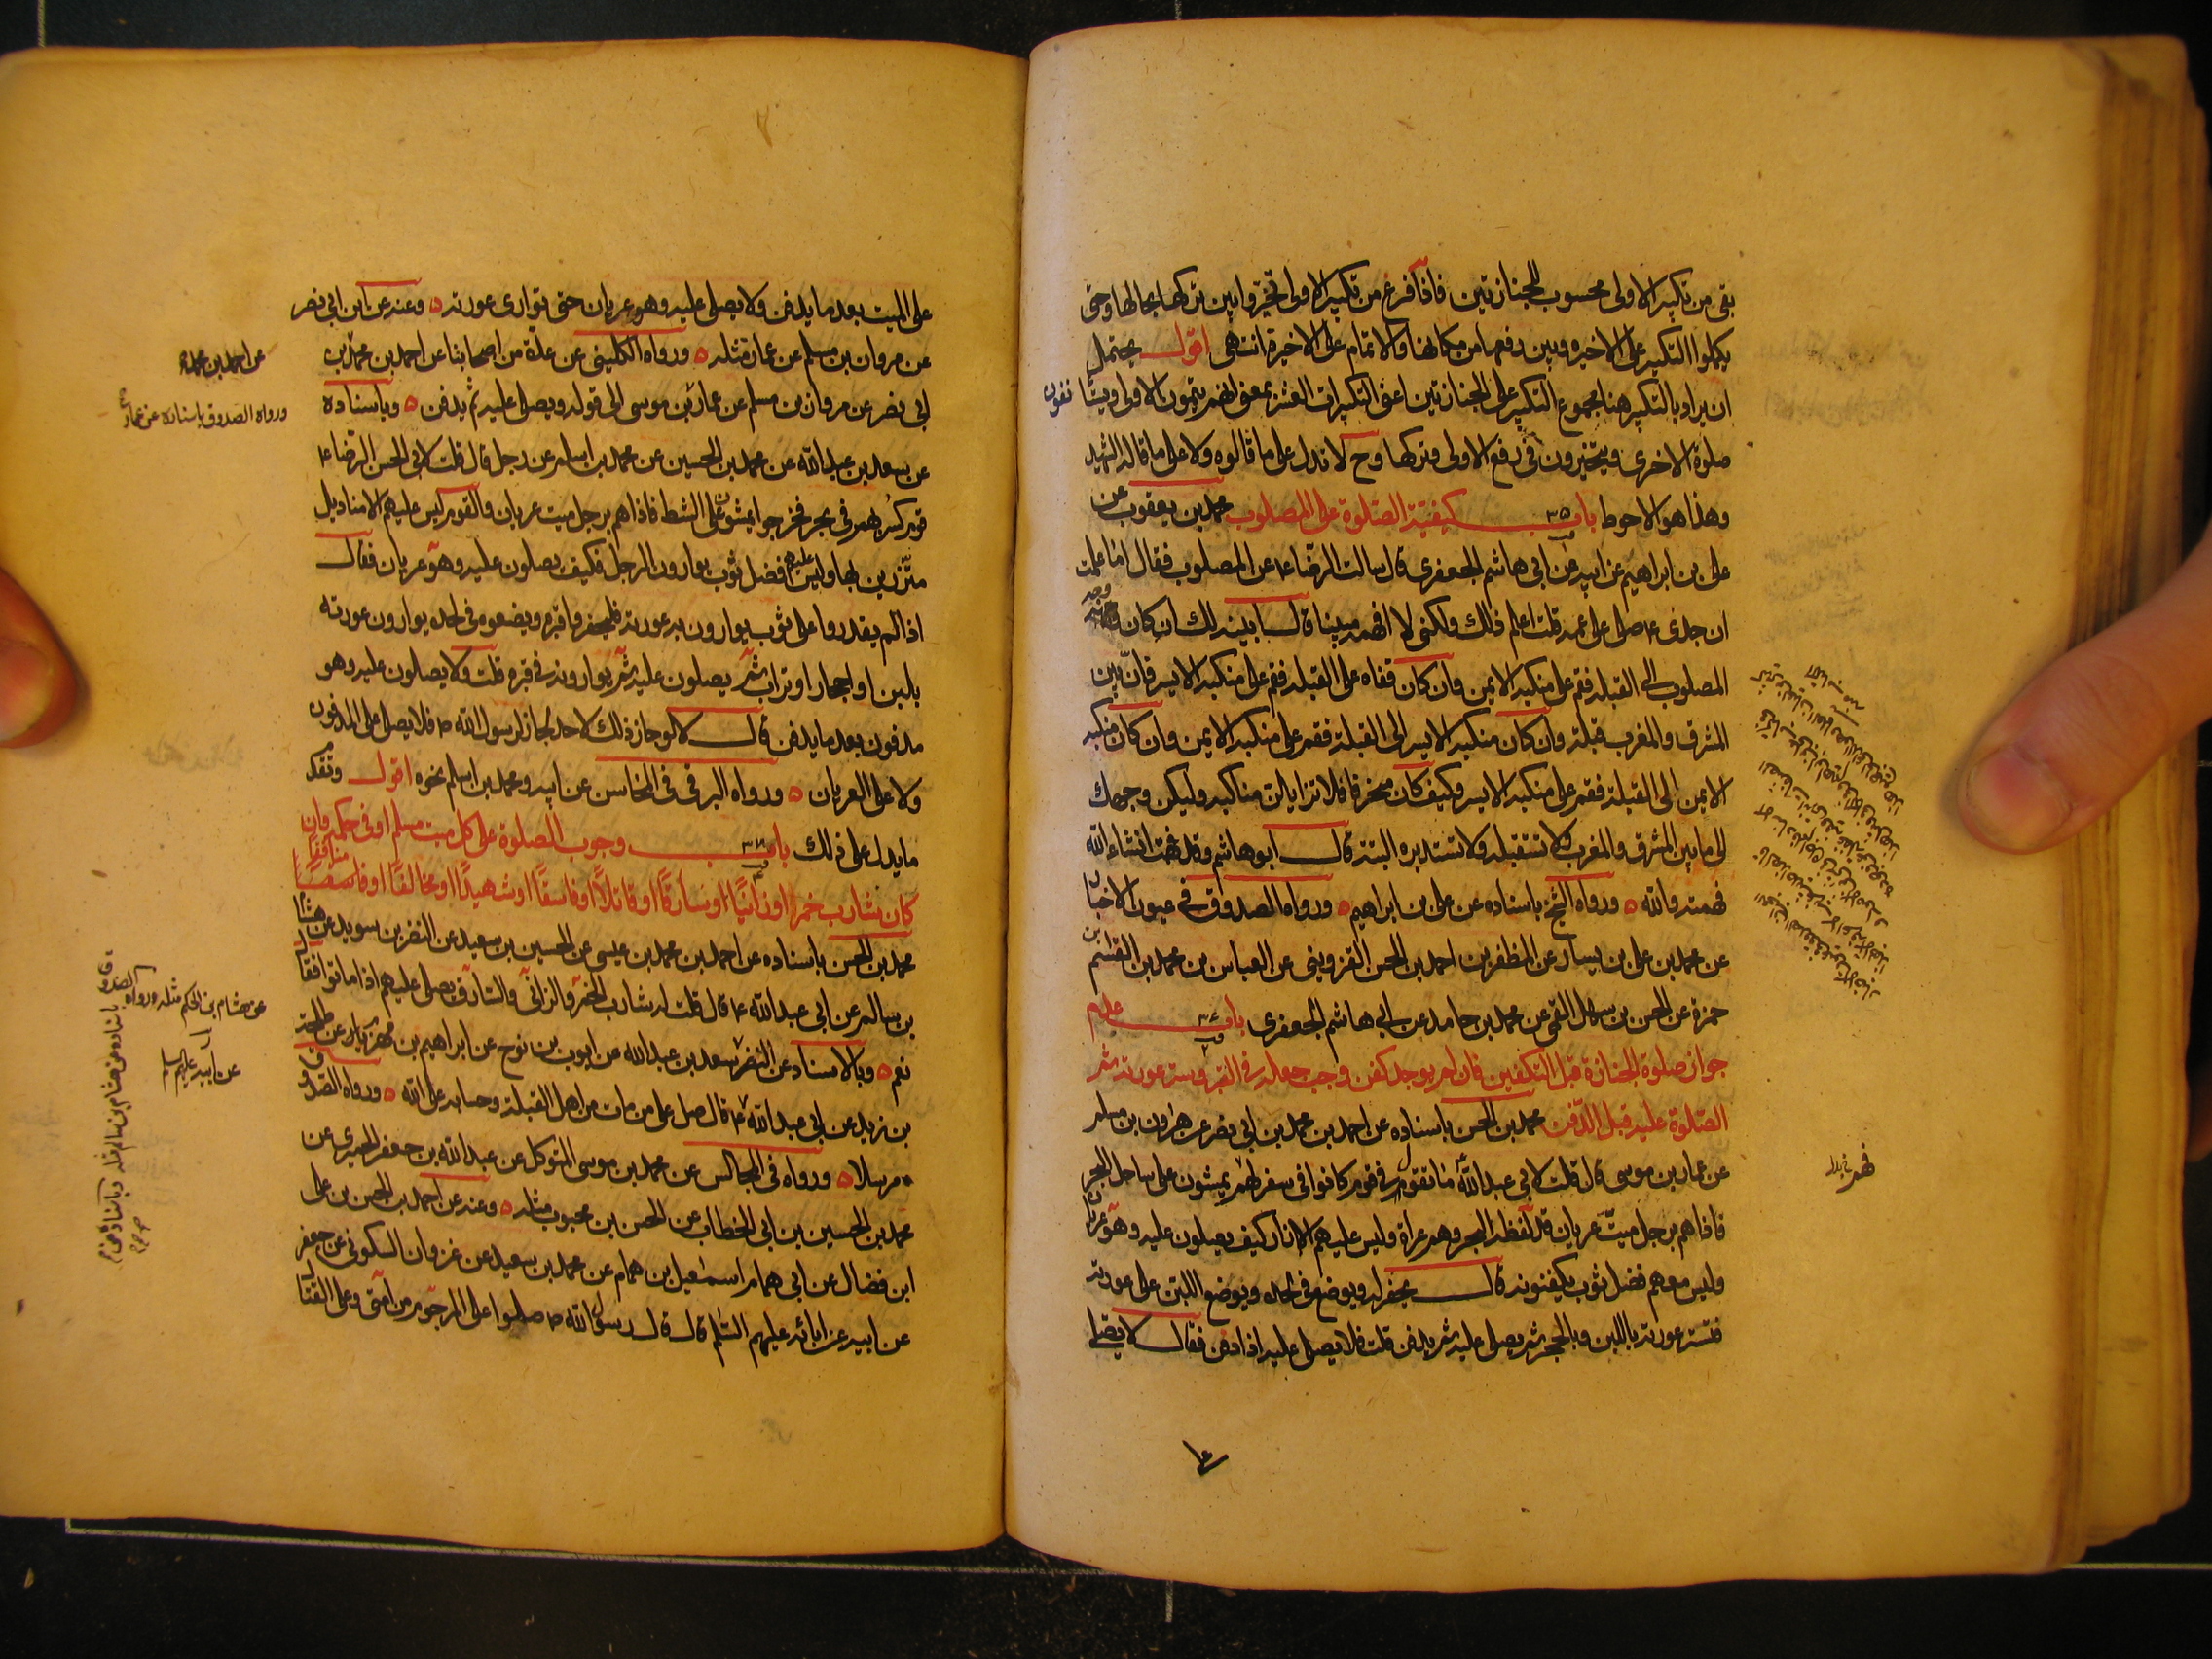 بقى من تكبير الاولى محسوب للجنازتين فاذا فرغ من تكبير الاولى تخيروا بين تركها بحالها وحتى
يكملوا التكبير على الاخيرة وبين رفعها من مكانها والاتمام على الاخيرة انتهى اقول يحتمل
ان يراد بالتكبير هنا مجموع التكبير على الجنازتين اعنى التكبيرات العشر بمعنى انهم يتمون الاولى ويستأنفون
صلوة الاخرى ويتخيرون فى رفع الاولى وتركها وح لا تدل على ما قالوه ولا على ما قاله الشهيد
وهذا هو الاحوط باب ٣٥ كيفية الصلوة على المصلوب محمد بن يعقوب عن
على بن ابراهيم عن ابيه عن ابى هاشم الجعفرى قال سالت الرضا ع عن المصلوب فقال اما علمت
ان جدى ع صلى على عمه قلت اعلم ذلك ولكنى لا افهمه مبينا قال ابينه لك ان كان وجه
المصلوب الى القبلة فقم على منكبه الايمن وان كان قفاه على القبلة فقم على منكبه الايسر فان بين
المشرق والمغرب قبلة وان كان منكبه الايسر الى القبلة فقم على منكبه الايمن وان كان منكبه
الايمن الى القبلة فقم على منكبه الايسر وكيف كان منحرفا فلا تزايلن مناكبه وليكن وجهك
الى ما بين المشرق والمغرب ولا تستقبله ولا تستدبره البتة قال ابو هاشم وقد فهمت انشاء الله
فهمته والله ورواه الشيخ باسناده عن على بن ابراهيم ورواه الصدوق فى عيون الاخبار
عن محمد بن على بن بشار عن المظفر بن احمد بن الحسن القزوينى عن العباس بن محمد بن القسم بن
حمزة عن الحسن بن سهل القمى عن محمد بن حامد عن ابى هاشم الجعفرى باب ٣٦ عدم
جواز صلوة الجنازة قبل التكفين فان لم يوجد كفن وجب جعله فى القبر وستر عورته ثم
الصلوة عليه قبل الدفن محمد بن الحسن باسناده عن احمد بن محمد بن ابى نصر عن هرون بن مسلم
عن عمار بن موسى قال قلت لابى عبد الله ع ما تقول فى قوم كانوا فى سفر لهم يمشون على ساحل البحر
فاذا هم برجل ميت عريان قد لفظه البحر وهم عراة وليس عليهم الا ازار كيف يصلون عليه وهو عريان
وليس معهم فضل ثوب يكفنونه قال يحفر له ويوضع فى لحده ويوضع اللبن على عورته
فتستر عورته باللبن وبالحجر ثم يصلى عليه ثم يدفن قلت فلا يصلى عليه اذا دفن فقال لا يصلى
على الميت بعد ما يدفن ولا يصلى عليه وهو عريان حتى توارى عورته وعنه عن ابن ابى نصر
عن مروان بن مسلم عن عمار مثله ورواه الكلينى عن عدة من اصحابنا عن احمد بن محمد بن
ابى نصر عن مروان بن مسلم عن عمار بن موسى الى قوله ويصلى عليه ثم يدفن وباسناده
عن سعد بن عبد الله عن محمد بن الحسين عن محمد بن اسلم عن رجل قال قلت لابى الحسن الرضا ع
قوم كسر بهم فى بحر فخرجوا يمشون على الشط فاذا هم برجل ميت عريان والقوم ليس عليهم الا مناديل
متزرين بها وليس عليهم فضل ثوب يوارون الرجل فكيف يصلون عليه وهو عريان فقال
اذا لم يقدروا على ثوب يوارون به عورته فليحفروا قبره ويضعوه فى لحده يوارون عورته
بلبن او احجار او تراب ثم يصلون عليه ثم يوارونه فى قبره قلت ولا يصلون عليه وهو
مدفون بعد ما يدفن قال لا لو جاز ذلك لاحد لجاز لرسول الله ص فلا يصلى على المدفون
ولا على العريان ورواه البرقى فى المحاسن عن ابيه ومحمد بن اسلم نحوه اقول وتقدم
ما يدل على ذلك باب ٣٧ وجوب الصلوة على كل ميت مسلم او فى حكمه وان
كان شارب خمر او زانيا او سارقا او قاتلا او فاسقا او شهيدا او مخالفا او منافقا
محمد بن الحسن باسناده عن احمد بن محمد بن عيسى عن الحسين بن سعيد عن النضر بن سويد عن هشام
بن سالم عن ابى عبد الله ع قال قلت له شارب الخمر والزانى والسارق يصلى عليهم اذا ماتوا فقال
نعم وبالاسناد عن النضر سعد بن عبد الله عن ايوب بن نوح عن ابراهيم بن مهزيار عن طلحة
بن زيد عن ابى عبد الله ع قال صل على من مات من اهل القبلة وحسابه على الله ورواه الصدوق
مرسلا ورواه فى المجالس عن محمد بن موسى المتوكل عن عبد الله بن جعفر الحميرى عن
محمد بن الحسين بن ابى الخطاب عن الحسن بن محبوب مثله وعنه عن احمد بن الحسن بن على
ابن فضال عن ابى همام اسمعيل بن همام عن محمد بن سعيد عن غزوان السكونى عن جعفر
عن ابيه عن ابائه عليهم السلم قال قال رسول الله ص صلوا على المرجوم من امتى وعلى القتال
عن احمد بن محمد
ورواه الصدوق باسناده عن عمار
عن هشام بن الحكم مثله ورواه الصدوق
باسناده عن هشام بن سالم
عن ابيه عليهم السلم